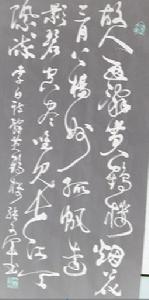 故人西辭黄鶴樓烟花
三月下揚州孤帆遠
影碧空盡唯見長江天
際流 李白诗辭黄鶴樓